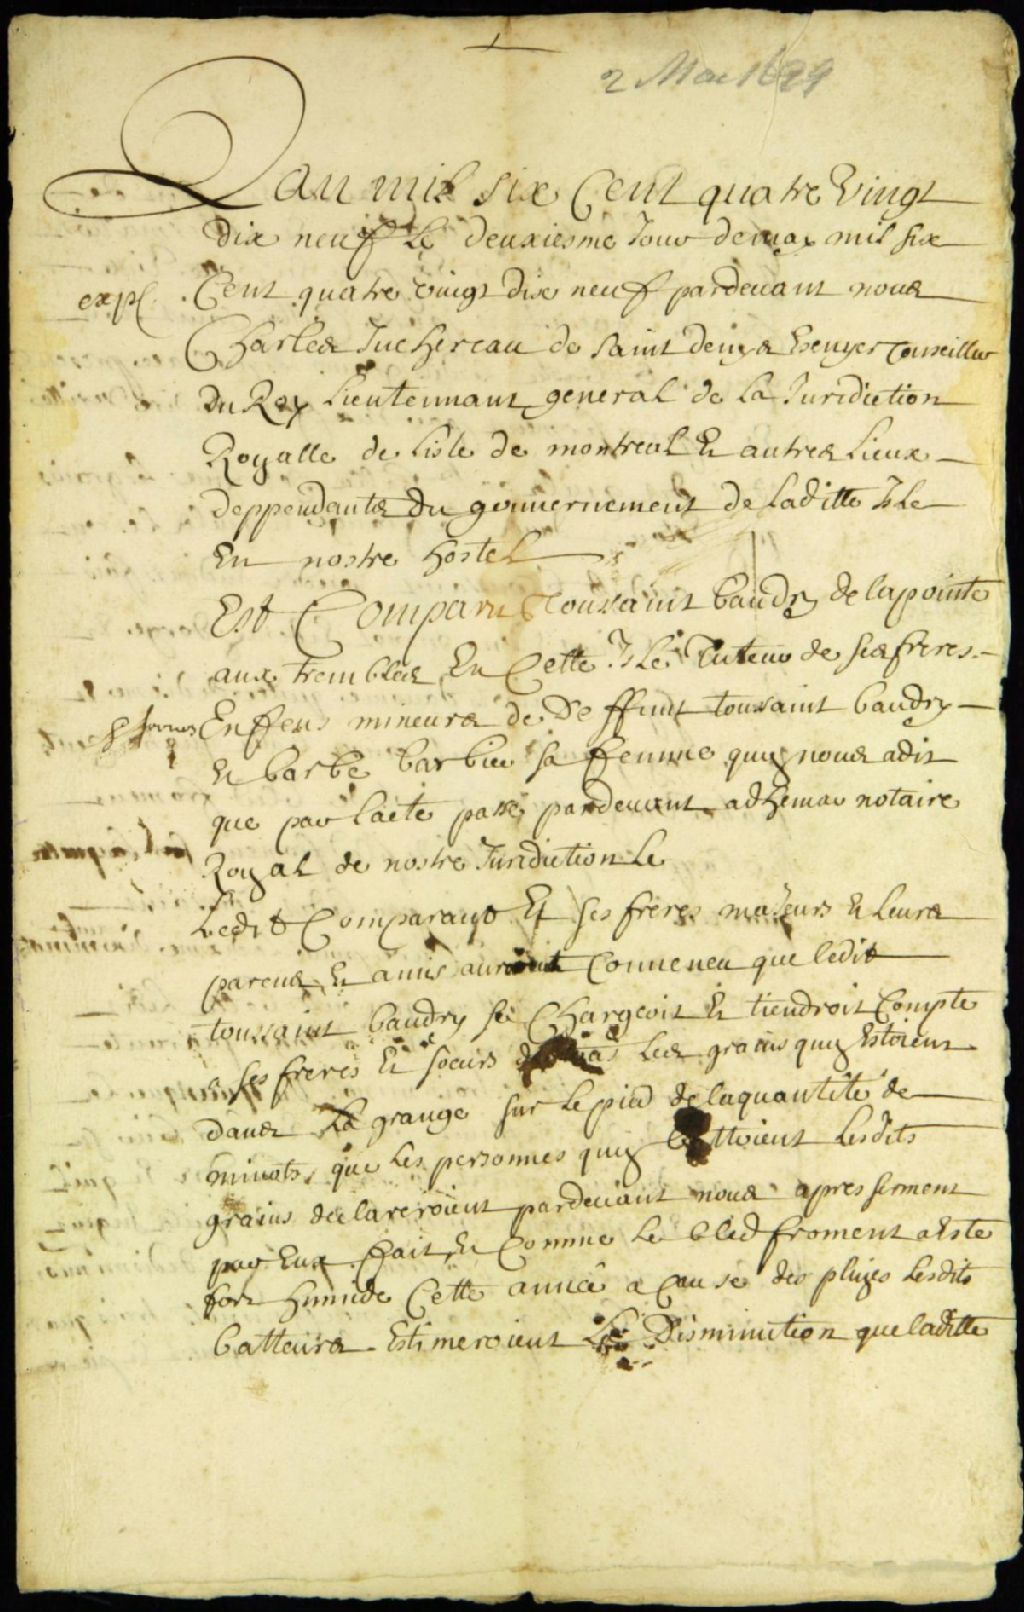 2 Mai 1699
Lan mil six Cent quatre Vingt
dix neuf Le deuxiesme Jour de may mil six
expl. Cent quatre vingt dix neuf pardevant nous
Charles Juchereau de Saint denys Escuyer Conseiller
Du Roy Lieutennant general de La Juridiction
Royalle de Lisle de montreal Et autres Lieux
deppendants Du gouvernement de Laditte Isle
En nostre hostel
Est Comparu Toussaint baudry de lapointe
aux trembles En Cette Isle Tuteur de ses freres
Enffens mineurs de Deffunt toussaint baudry
Et barbe barbier sa femme quy nous a dit
que par Lacte passé pardevant adhemar notaire
Royal de nostre Juridiction Le
Ledit Comparant Et ses freres majeurs Et Leurs
parens Et amis auroient Conveneu que Ledit
toussaint baudry se Chargeoit Et tiendroit Compte
a ses freres Et soeurs Les grains quy Estoient
dans La grange sur Le pied de laquantité de
minots que Les personnes quy battoient Lesdits
grains declareroient pardevant nous apres serment
par Eux fait, Et Comme Le bled froment a Esté
fort humide Cette année a Cause des pluyes Lesdits
batteurs Estimeroient La Disminution que laditte